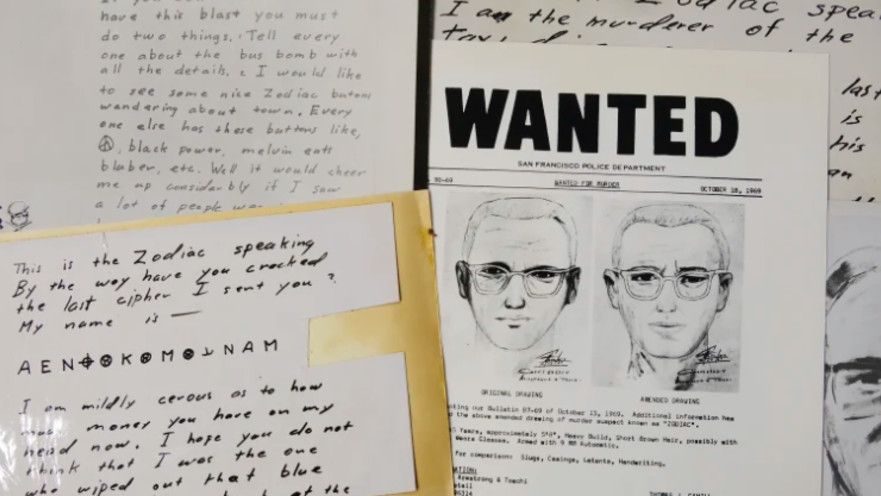 have this blast you must
do two things. Tell every
one about the bus bomb with
all the details. I would like
to see some nice Zodiac butons
wandering about town. Every
one else has these buttons like,
☮, black power, melvin eats
bluber, etc. Well it would cheer
me up considerbly if I saw
a lot of people
This is the Zodiac speaking
By the way have you cracked
the last cipher I sent you?
My name is —
A E N ⌖ ⊗ K ⊗ M ⊗ ⅃ N A M
I am mildly cerous as to how
money you have on my
head now. I hope you do not
think that I was the one
who wiped out that blue
at the
speak
I am the murderer of the
last
is
his
WANTED
SAN FRANCISCO POLICE DEPARTMENT
90-69 WANTED FOR MURDER OCTOBER 18, 1969
ORIGINAL DRAWING AMENDED DRAWING
our Bulletin 87-69 of October 13, 1969. Additional information has
the above amended drawing of murder suspect known as "ZODIAC".
5 Years, approximately 5'8", Heavy Build, Short Brown Hair, possibly with
Weers Glasses. Armed with 9 MM Automatic.
For comparison: Slugs, Casings, Latents, Handwriting.
Armstrong & Toschi
THOMAS J. CAHILL